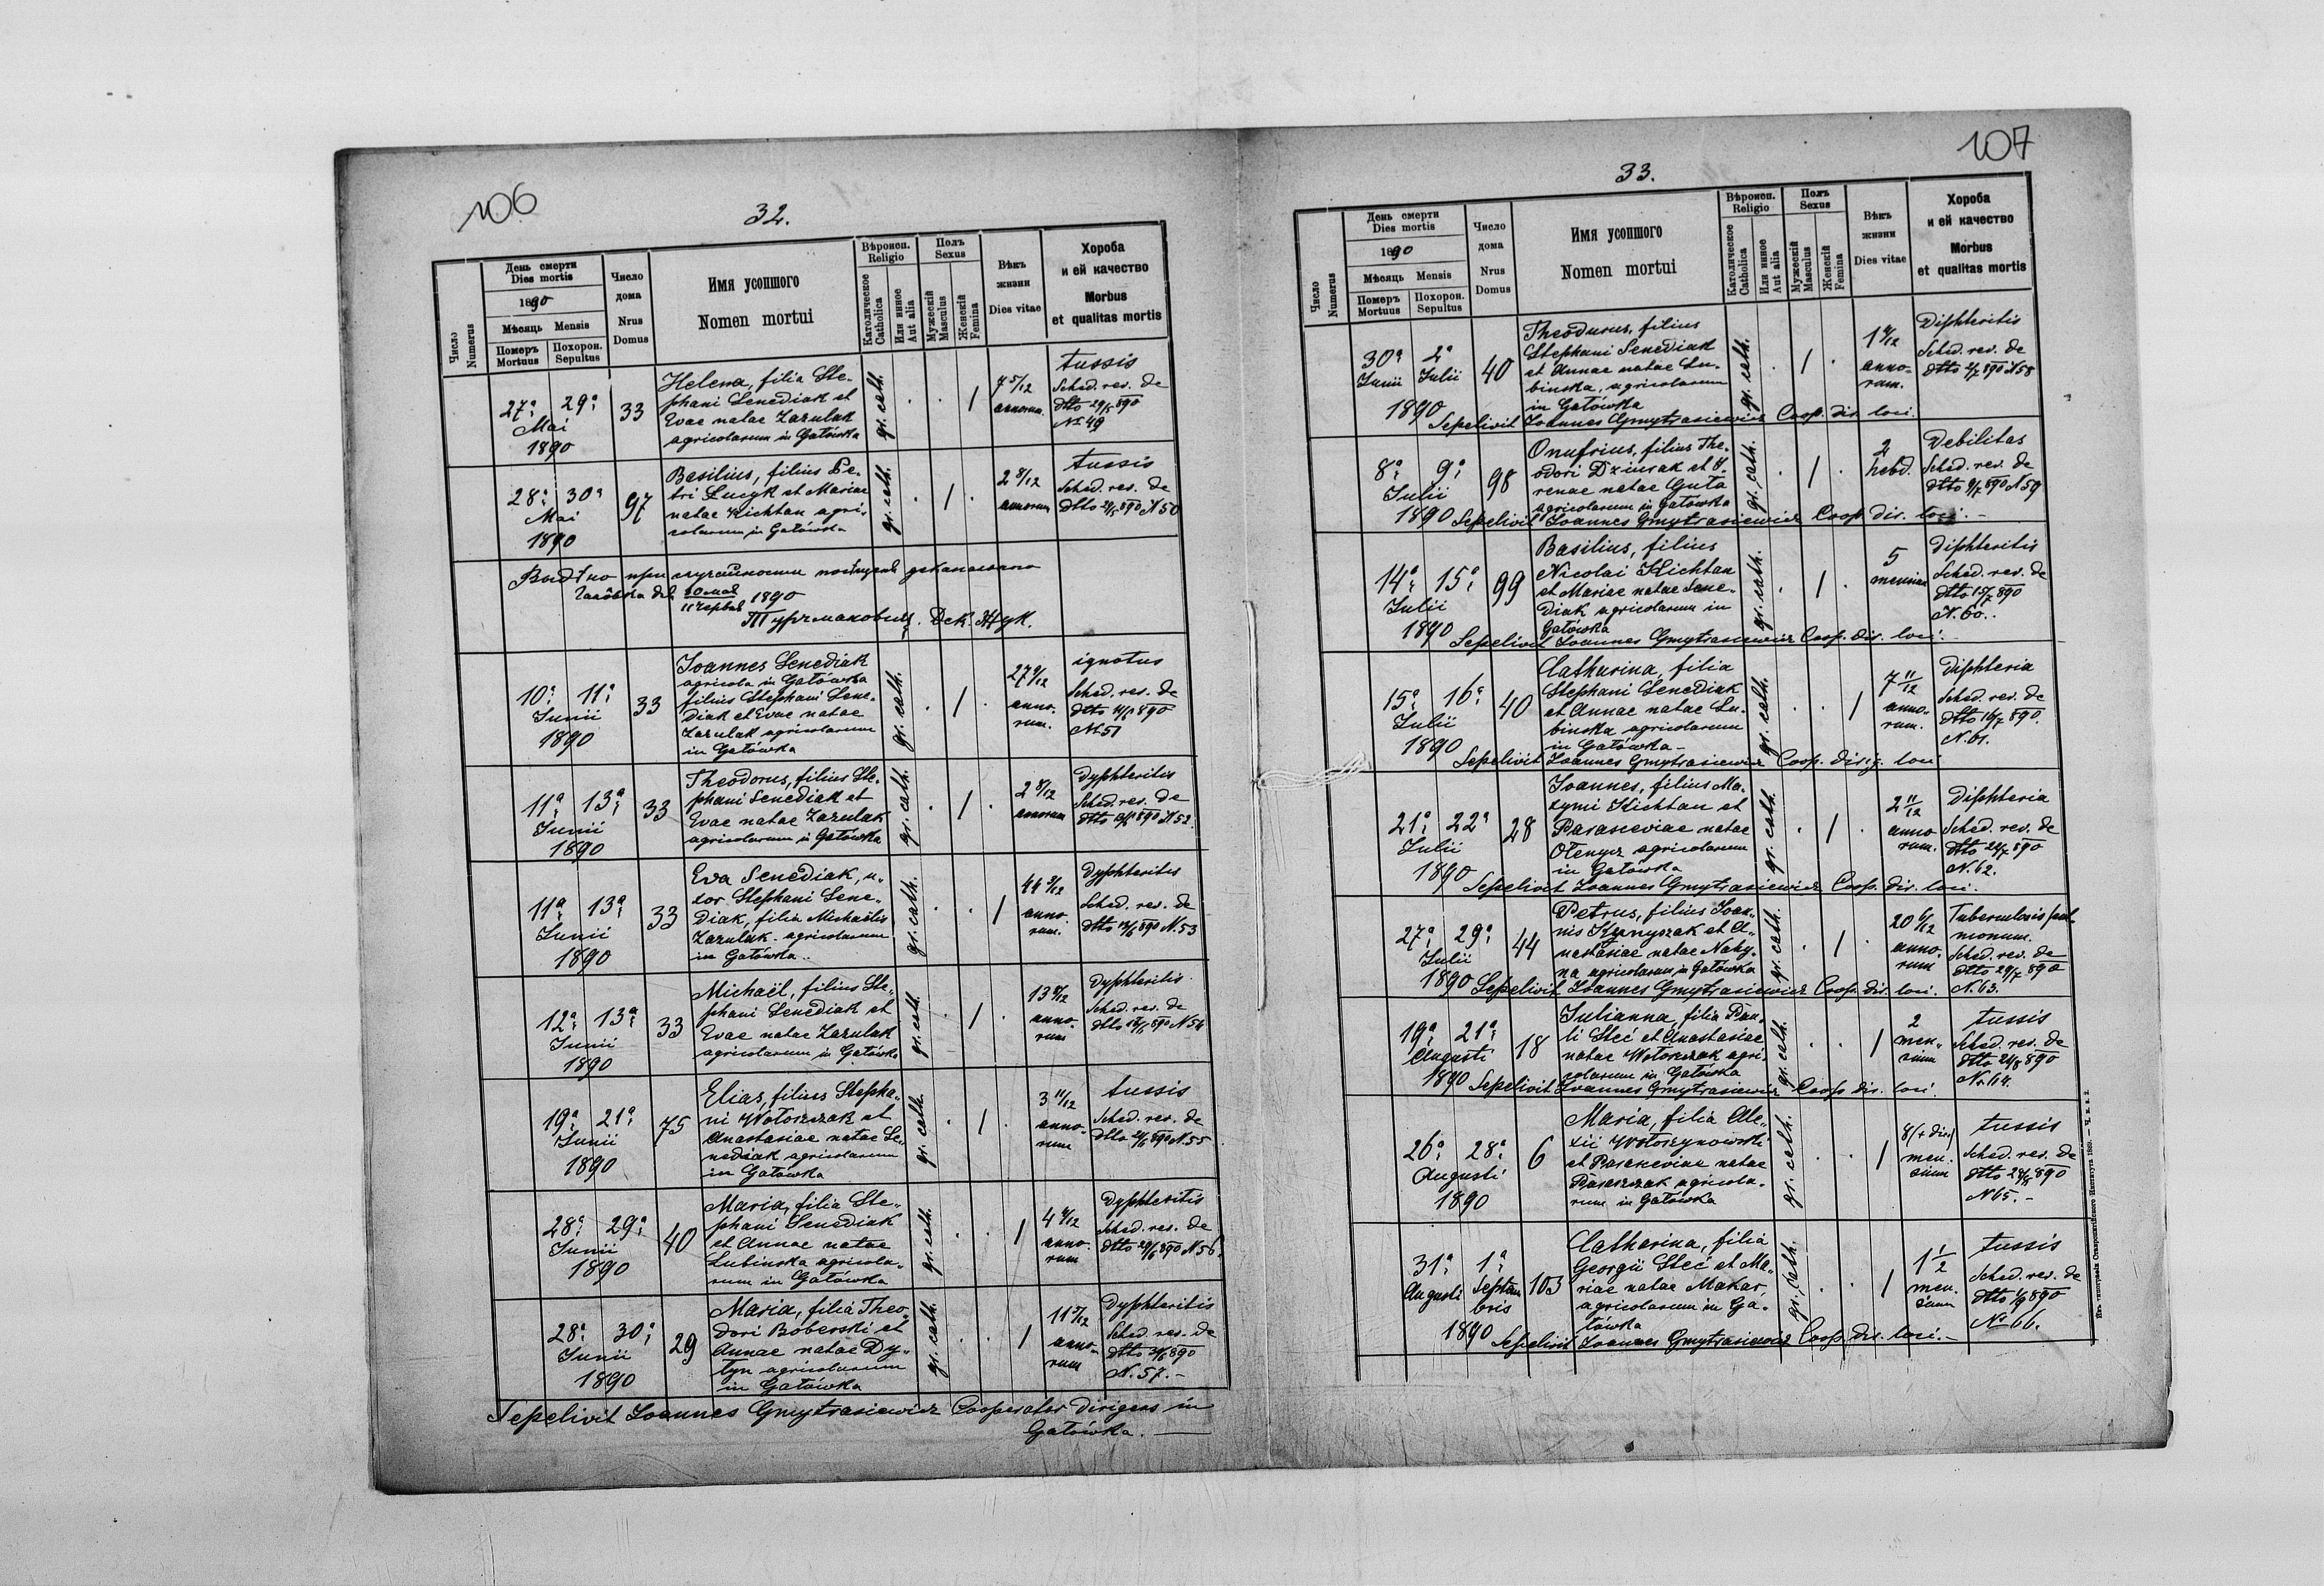 106
32.
Число
Numerus
День смерти
Dies mortis
1890
Мѣсяць Mensis
Померъ
Mortuus
Похорон.
Sepultus
Число
дома
Nrus
Domus
Имя усопшого
Nomen mortui
Вѣроисп.
Religio
Католическое
Catholica
Или инное
Aut alia
Полъ
Sexus
Мужескій
Masculus
Женскій
Femina
Вѣкъ
жизни
Dies vitae
Хороба
и ей качество
Morbus
et qualitas mortis
27а 29а
Mai
1890
33
Helena, filia Ste-
phani Senediak et
Evae natae Zazulak
agricolarum in Gatówka
gr. cath.
1
7 5/12
annorum
tussis
Sched. rev. de
dtto 29/5 890
No 49
28а 30а
Mai
1890
97
Basilius, filius Pe-
tri Lucyk et Mariae
natae Kichtan agri-
colarum in Gatówka
gr. cath.
1
2 8/12
annorum
tussis
Sched. rev. de
dtto 29/5 890 N 50
Видѣно при
1890
Дек. Жук.
10а 11а
Junii
1890
33
Joannes Senediak
agricola in Gatówka
filius Stephani Sene-
diak et Evae natae
Zazulak agricolarum
in Gatówka
gr. cath.
1
27 9/12
anno-
rum.
ignotus
Sched. rev. de
dtto 11/6 890
N 51
11а 13а
Junii
1890
33
Theodorus, filius Ste-
phani Senediak et
Evae natae Zazulak
agricolarum in Gatówka
gr. cath.
1
2 8/12
annorum
Dyphteritis
Sched. rev. de
dtto 12/6 890 N 52.
11а 13а
Junii
1890
33
Eva Senediak, u-
xor Stephani Sene-
diak, filia Michaelis
Zazulak agricolarum
in Gatówka..
gr. cath.
1
44 9/12
anno-
rum.
Dyphteritis
Sched. rev. de
dtto 12/6 890 N. 53
12а 13а
Junii
1890
33
Michaël, filius Ste-
phani Senediak et
Evae natae Zazulak
agricolarum in Gatówka
gr. cath.
1
13 8/12
anno-
rum
Dyphteritis
Sched. rev. de
dtto 12/6 890 N 54
19а 21а
Junii
1890
75
Elias, filius Stepha-
ni Wołoszczak et
Anastasiae natae Se-
nediak agricolarum
in Gatówka
gr. cath.
1
3 11/12
anno-
rum
tussis
Sched. rev. de
dtto 21/6 890 N 55
28а 29а
Junii
1890
40
Maria, filia Ste-
phani Senediak
et Annae natae
Lubinska agricola-
rum in Gatówka
gr. cath.
1
4 4/12
anno-
rum
Dyphteritis
Sched. rev. de
dtto 29/6 890 N 56.
28а 30а
Junii
1890
29
Maria, filia Theo-
dori Boberski et
Annae natae Dy-
tyn agricolarum
in Gatówka
gr. cath.
1
11 5/12
anno-
rum
Dyphteritis
Sched. rev. de
dtto 30/6 890
N. 57.-
Sepelivit Joannes Gmytrasiewicz Cooperator dirigens in
Gatówka.
107
33.
Число
Numerus
День смерти
Dies mortis
1890
Мѣсяць Mensis
Померъ
Mortuus
Похорон.
Sepultus
Число
дома
Nrus
Domus
Имя усопшого
Nomen mortui
Вѣроисп.
Religio
Католическое
Catholica
Или инное
Aut alia
Полъ
Sexus
Мужескій
Masculus
Женскій
Femina
Вѣкъ
жизни
Dies vitae
Хороба
и ей качество
Morbus
et qualitas mortis
30а 2а
Junii Julii
1890
40
Theodorus, filius
Stephani Senediak
et Annae natae Lu-
binska, agricolarum
in Gatówka
gr. cath.
1
anno-
rum.
Diphteritis
Sched. rev. de
dtto 2/7 890 N 58
Sepelivit Joannes Gmytrasiewicz Coop. dir. loci.
8а 9а
Julii
1890
98
Onufrius, filius The-
odori Dziurak et I-
renae natae Guta
agricolarum in Gatówka
gr. cath.
1
2
hebd.
Debilitas
Sched. rev. de
dtto 9/7 890 N 59
Sepelivit Joannes Gmytrasiewicz Coop. dir. loci.-
14а 15а
Julii
1890
99
Basilius, filius
Nicolai Kichtan
et Mariae natae Sene-
diak agricolarum in
Gatówka
gr. cath.
1
5
mensium
Diphteritis
Sched. rev. de
dtto 15/7 890
N. 60..
Sepelivit Joannes Gmytrasiewicz Coop. dir. loci.-
15а 16а
Julii
1890
40
Catharina, filia
Stephani Senediak
et Annae natae Lu-
binska agricolarum
in Gatówka-
gr. cath.
1
7 11/12
anno-
rum.
Diphteria
Sched. rev. de
dtto 16/7 890.
N. 61.
Sepelivit Joannes Gmytrasiewicz Coop. dirig. loci
21а 22а
Julii
1890
28
Joannes, filius Ma-
xymi Kichtan et
Parasceviae natae
Ołenycz agricolarum
in Gatówka
gr. cath.
1
2 11/12
anno
rum.
Diphteria
Sched. rev. de
dtto 22/7 890
N. 62.
Sepelivit Joannes Gmytrasiewicz Coop. dir. loci.
27а 29а
Julii
1890
44
Petrus, filius Joan-
nis Kyrnyszak et A-
nastasiae natae Nahy-
na agricolarum in Gatówka
gr. cath.
1
20 6/12
anno-
rum
Tuberculosis pul-
monum.
Sched. rev. de
dtto 29/7 890
N. 63.
Sepelivit Joannes Gmytrasiewicz Coop. dir. loci.
19а 21а
Augusti
1890
18
Julianna, filia Pau-
li Steć et Anastasiae
natae Wołoszczak agri-
colarum in Gatówka
gr. cath.
1
2
men-
sium
tussis
Sched. rev. de
dtto 21/8 890
No. 64.
Sepelivit Joannes Gmytrasiewicz Coop. dir. loci.
26а 28а
Augusti
1890
6
Maria, filia Ale-
xii Wołoszynowski
et Parasceviae natae
Paraszczak agricola-
rum in Gatówka
gr. cath.
1
men-
sium
tussis
Sched. rev. de
dtto 28/8 890
N 65.-
31а 1а
Augusti Septem
bris
1890
103
Catharina, filia
Georgii Steć et Ma-
riae natae Makar,
agricolarum in Ga-
tówka
gr. cath.
1
1 1/2
men-
sium
tussis
Sched. rev. de
dtto 1/9 890
No 66.
Sepelivit Joannes Gmytrasiewicz Coop. dir. loci.-
Изъ типографіи Ставропигійского Института 1889.